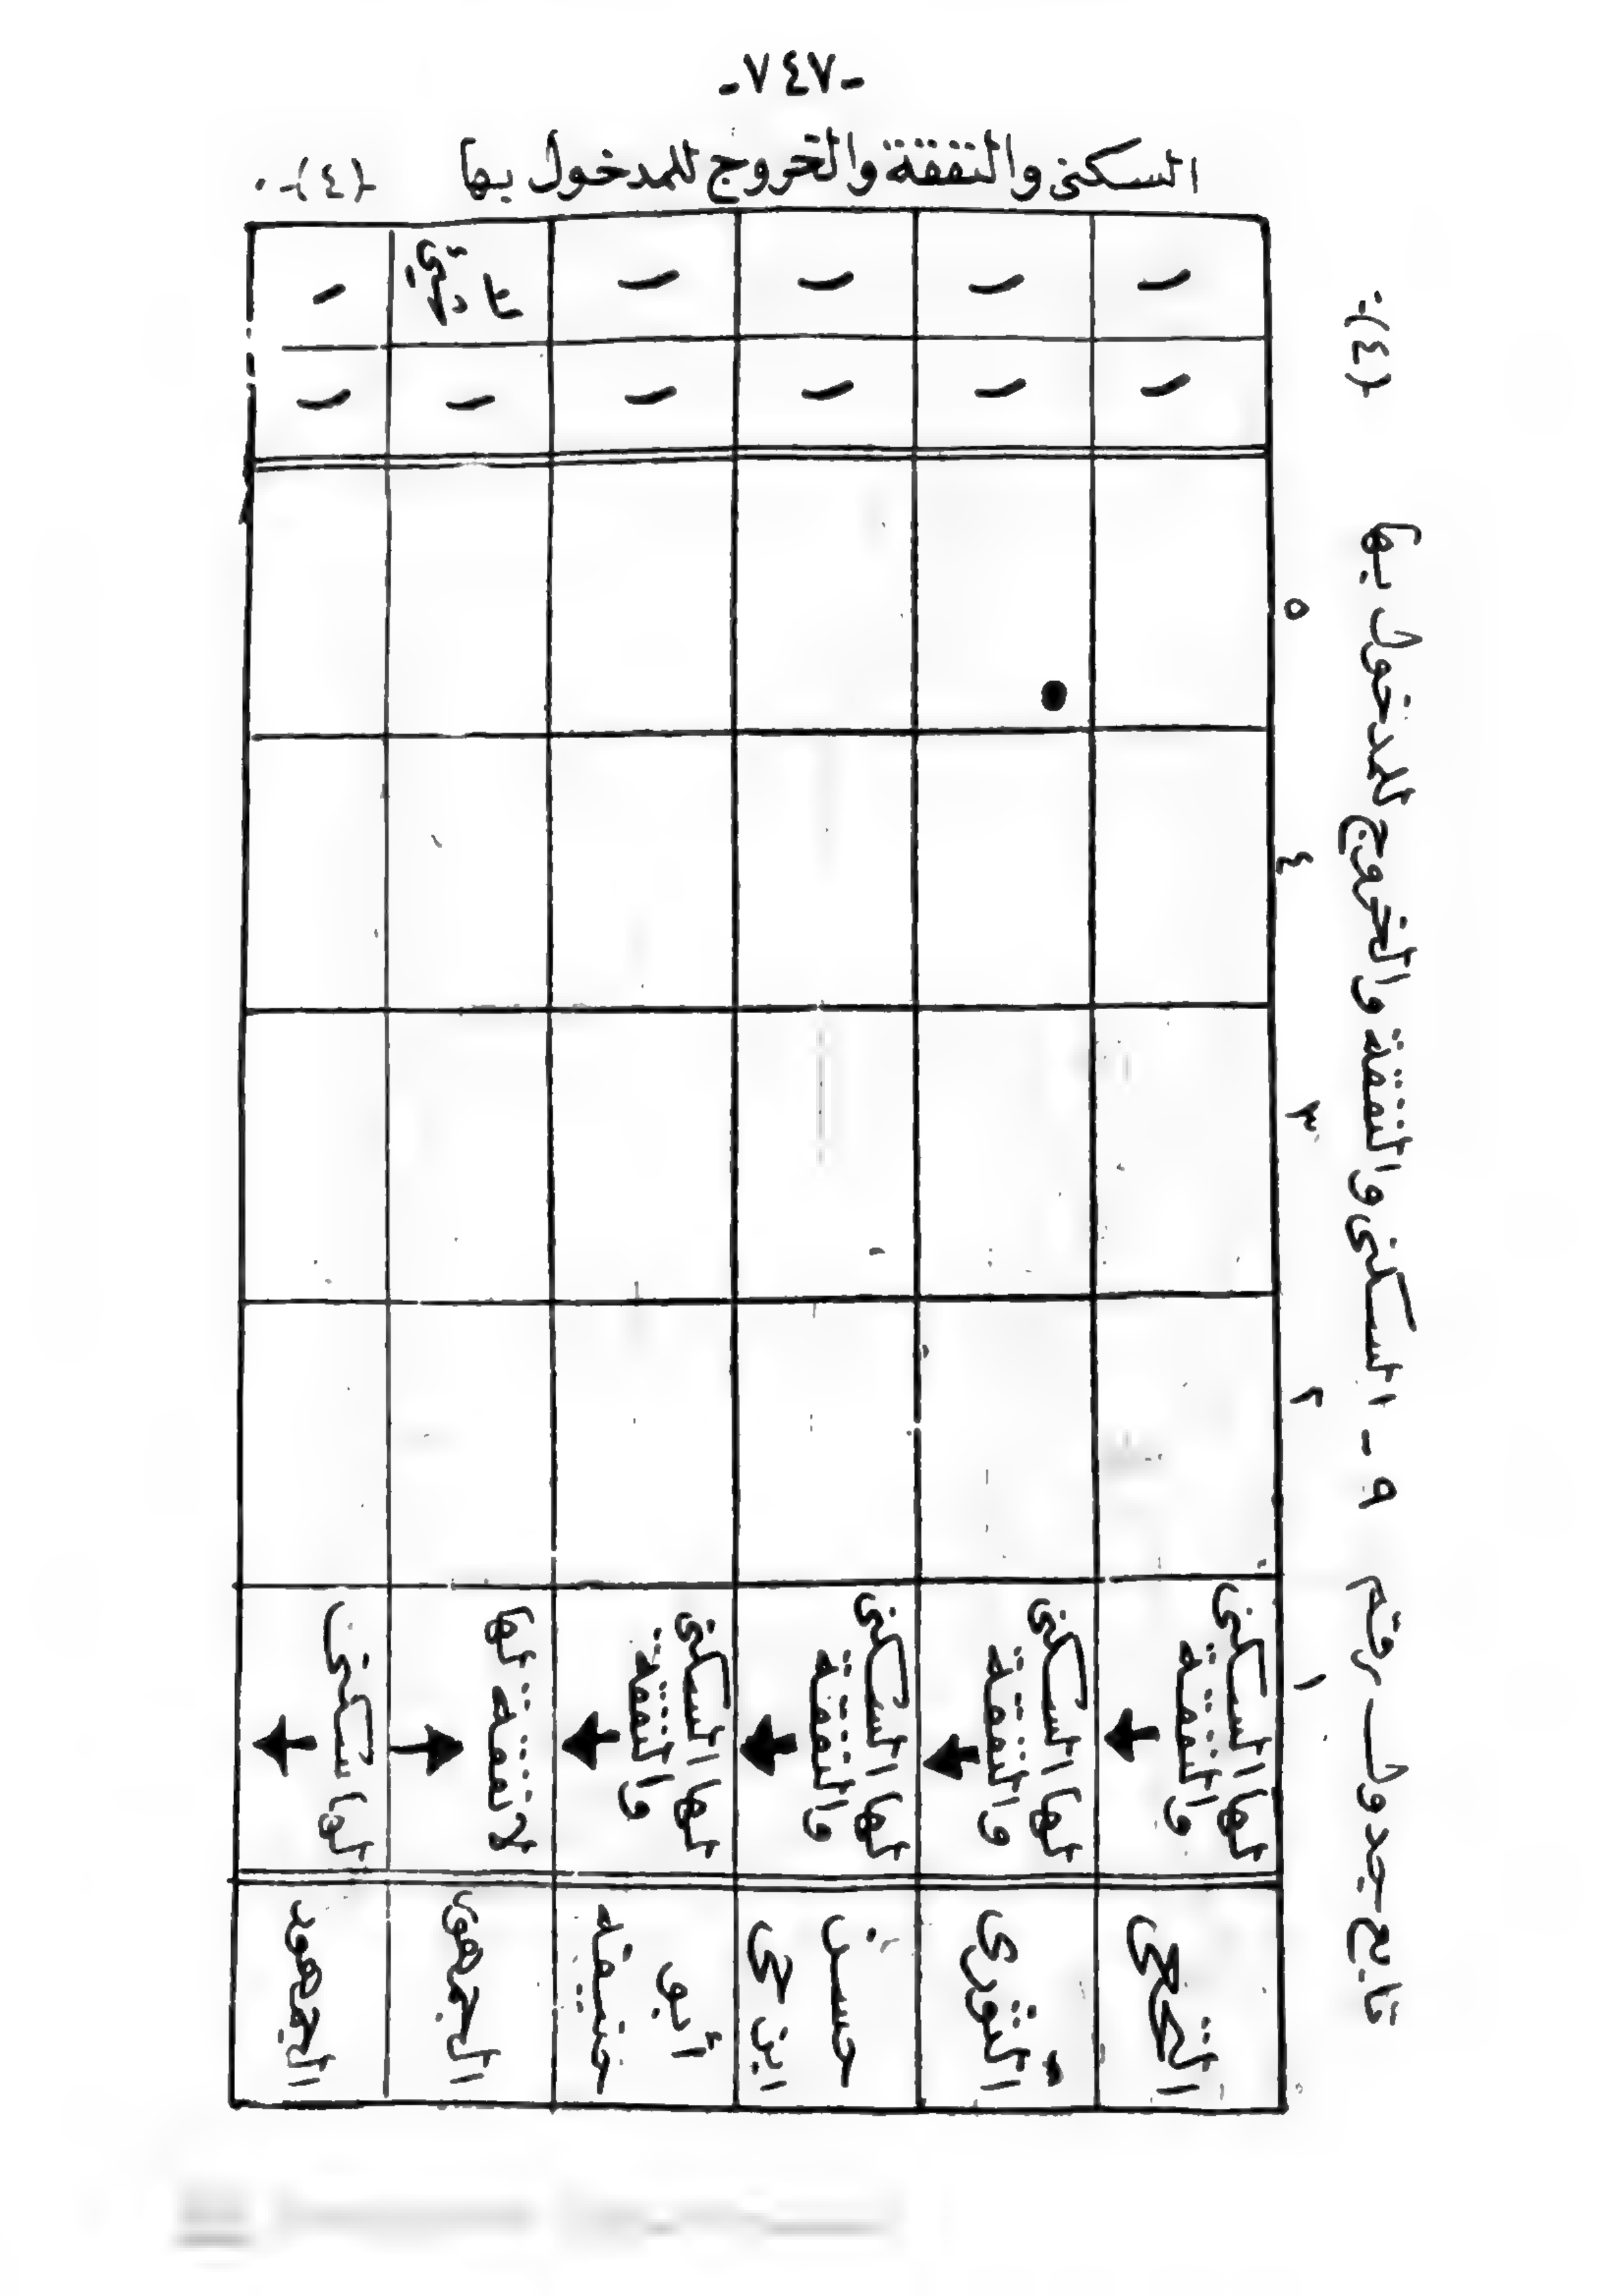 -٧٤٧-
السكنى والنفقة والخروج للمدخول بها -(٤)-
تابع جدول رقم ٩ - السكنى والنفقة والخروج للمدخول بها -(٤)-
١ ٢ ٣ ٤ ٥
النخعى لها السكنى والنفقة - -
الثورى لها السكنى والنفقة - -
حسن ابن حى لها السكنى والنفقة - -
أبو حنيفة لها السكنى والنفقة - -
الجمهور لا نفقة لها -
الجمهور لها سكنى - -